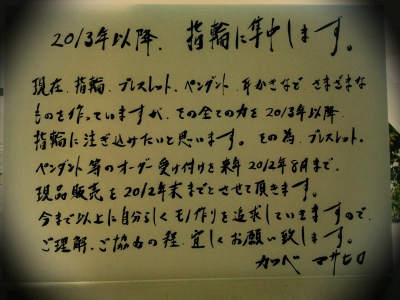 2013年以降、指輪に集中します。
現在、指輪、ブレスレット、ペンダント、耳かざなど さまざまな
ものを作っていますが、その全ての力を2013年以降、
指輪に注ぎ込みたいと思います。その為、ブレスレット、
ペンダント等のオーダー受け付けを来年2012年8月まで、
現品販売を2012年末までとさせて頂きます。
今まで以上に自分らしくモノ作りを追求していきますので、
ご理解、ご協力の程、宜しくお願い致します。
カツベ マサヒロ